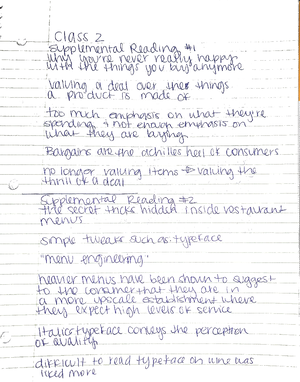 Class 2
Supplemental Reading #1
why you're never really happy
with the things you buy anymore
valuing a deal over the things
a product is made of
too much emphasis on what they're
spending & not enough emphasis on
what they are buying
Bargains are the achilles heel of consumers
no longer valuing items → valuing the
thrill of a deal
Supplemental Reading #2
the secret tricks hidden inside restaurant
menus
simple tweaks such as typeface
"menu engineering"
heavier menus have been shown to suggest
to the consumer that they are in
a more upscale establishment where
they expect high levels of service
Italics typeface conveys the perception
of quality
difficult to read typeface on wine was
liked more